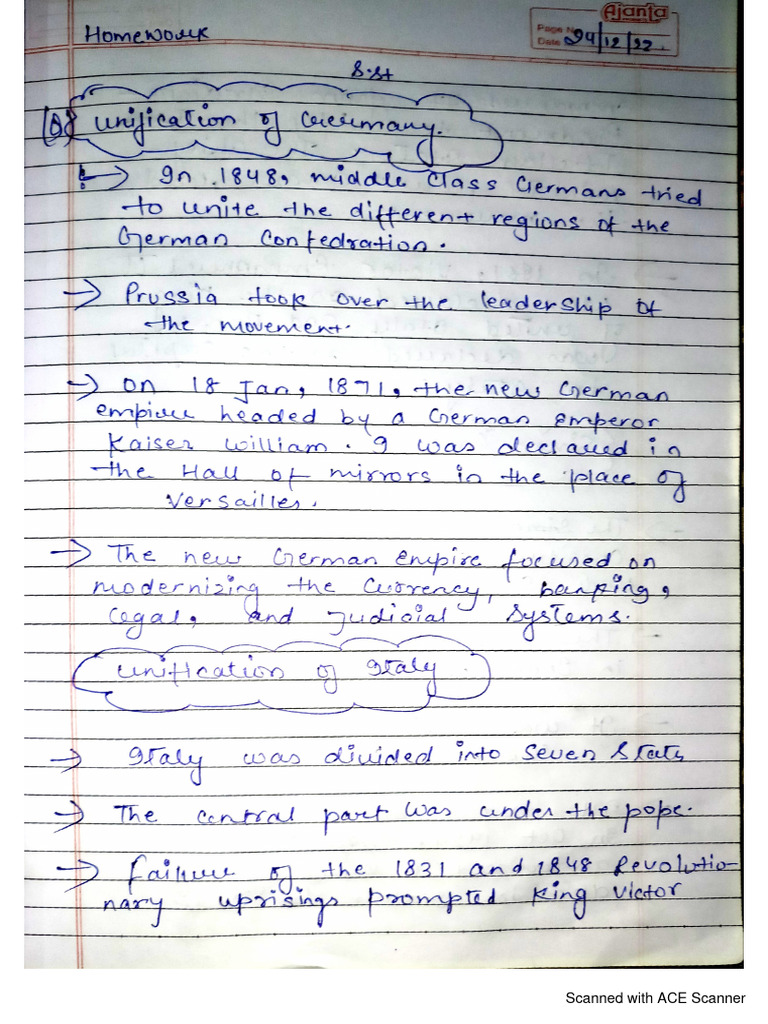 Ajanta
Homework
Page No.
Date 24/12/22
S.St
[Q] Unification of Germany.
!-> In 1848, middle class Germans tried
to unite the different regions of the
German Confedration.
-> Prussia took over the leadership of
the movement.
-> On 18 Jan, 1871, the new German
empire headed by a German emperor
Kaiser William. I was declared in
the Hall of mirrors in the place of
versailles.
-> The new German empire focused on
modernizing the currency, banking,
legal, and Judicial systems.
Unification of Italy
-> Italy was divided into seven States
-> The central part was under the pope.
-> Failure of the 1831 and 1848 Revolutio-
nary uprisings prompted King Victor
Scanned with ACE Scanner